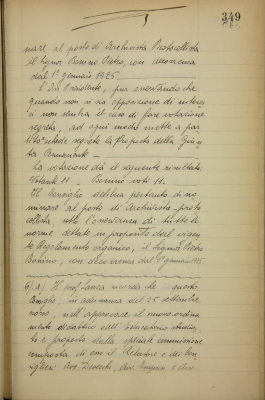 349
nare al posto di Archivista Protocollista
il Signor Bonino Pietro, con decorrenza
dal 1° gennaio 1925.
Il Presidente, pur constatando che
quando non vi sia opposizione
non il caso di fare votazione
segreta, ad ogni modo mette a par
tito a schede segrete la proposta della Giun
ta Permanente.
La votazione dà il seguente risultato:
Votanti 11 - Bonino voti 11.
Il Consiglio delibera pertanto di no
minare al posto di Archivista-proto
collista sotto l'osservanza di tutte le
norme dettate in proposito dal vigen
te Regolamento organico, il Signor Pietro
Bonino, con decorrenza dal 1° gennaio 1925
6) a) Il ricorda che questo
Consiglio, in adunanza del 25 settembre
nell'approvare il nuovo ordina
mento didattico dell'
to e proposto dalla speciale commissione
composta di esso il Relatore e dei Con
siglieri Avv.